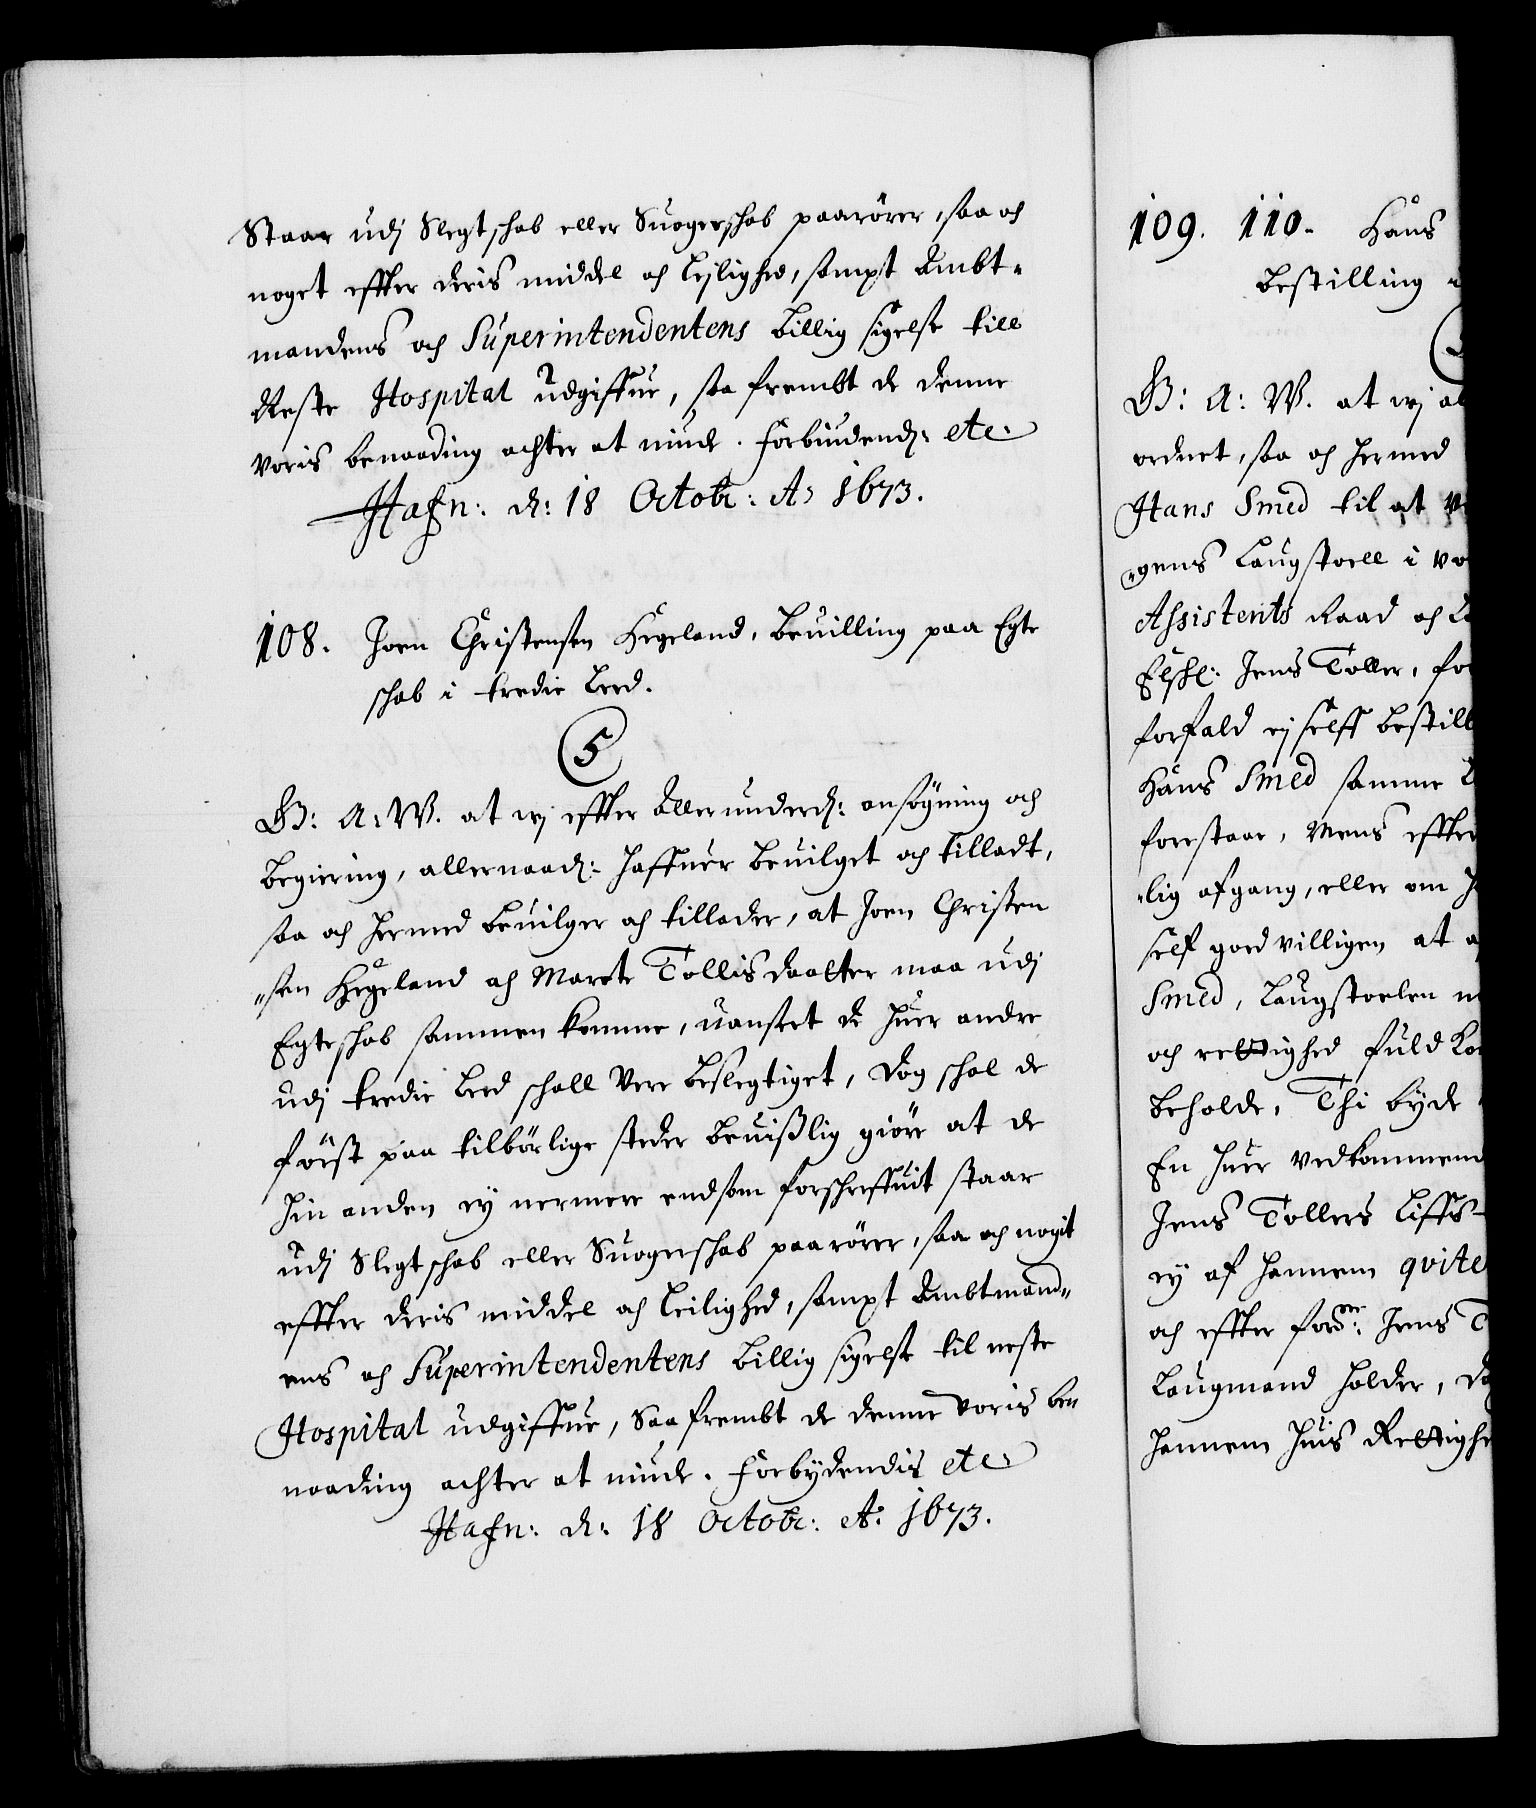 Staar udj Slegtschab eller Suogerschab paarörer, saa och
noget effter deris middel och lejlighed, sampt Ambt-
mandens och Superintendentens billig sigelse till
Neste Hospital udgiffue, saa frembt de denne
voris benaading achter at niude. Forbiudend: etc
Hafn: d: 18 Octobr: Ao 1673.
108. Joen Christensen Hegeland, Beuilling paa Egte
schab i tredie Leed.
5
G: A: W. at wj effter Allerunderd: ansögning och
begiering, allernaad: haffuer beuilget och tilladt,
saa och hermed beuilger och tillader, at Joen Christen
"sen Hegeland och Marete Tollisdaatter maa udj
Egteschab sammen komme, uanseet de huer andre
udj tredie Leed schall vere beslegtiget, Dog schal de
först paa tilbörlige steder beuißlig giöre at de
hin anden ey nermere endsom forschreffuit staar
udj Slegtschab eller Suogerschab paarörer, saa och nogit
effter deris middel och leilighed, sampt Ambtmand-
ens och Superintendentens billig sigelse til neste
Hospital udgiffue, Saafrembt de denne voris be-
naading achter at niude. Forbydendis etc
Hafn: d: 18 Octobr: Ao: 1673.
109. 110. Hans
bestilling
G: A: W. at wj al
ordnet, saa och hermed
Hans Smed til at
"gens Laugstoell i vo
Assistents Raad och
Elskl: Jens Toller, for
forfald ej selff bestill
Hans Smed samme
forestaar, Mens effter
"lig afgang, eller om
self goedvilligen at
Smed, Laugstoelen
och rettighed fuldko
beholde, Thi byde
En huer vedkommend
Jens Tollers Liffs-
ey af hannem qvite
och effter forne: Jens T
Laugmand holder, Do
hannem huis Rettighe